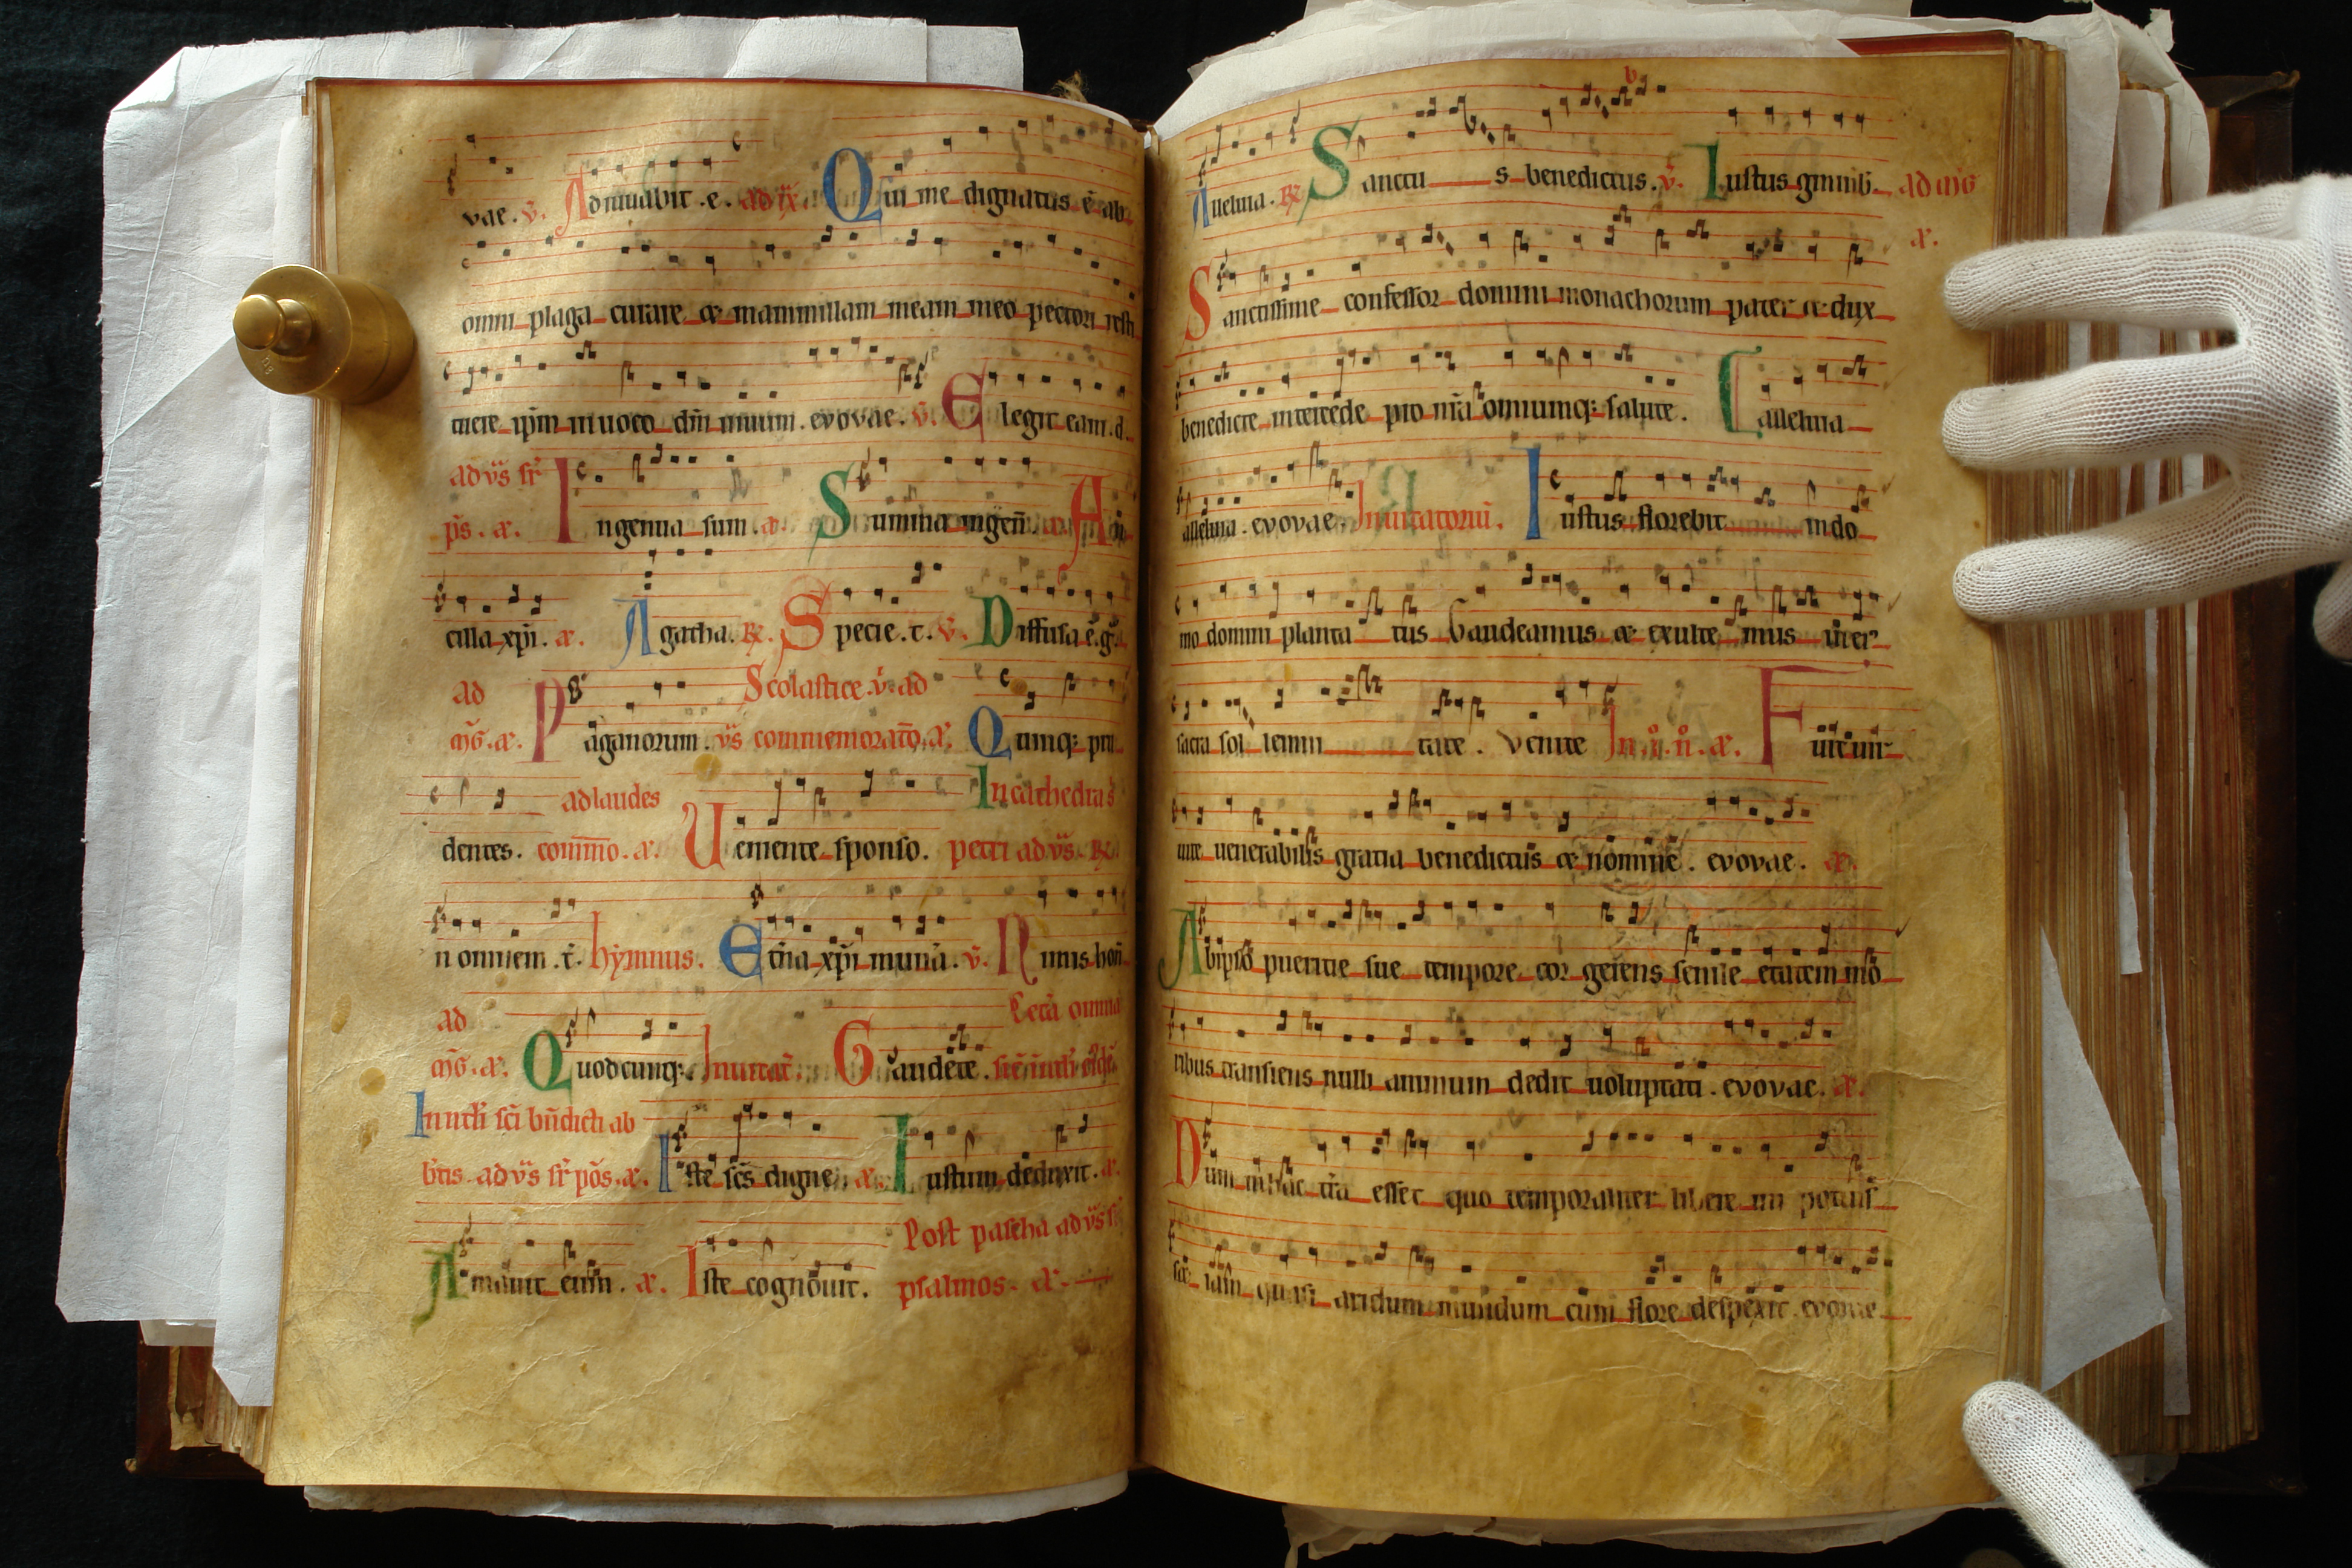 vae. v̄. Adiuuabit .e. ad ix. Qui me dignatus ē ab
omni plaga curare æ mammillam meam meo pectori resti
tuere ip̄m inuoco dm̄ uiuum. evovae. v̄. Elegit eam .d.
ad v̄s sr̄
p̄s. a. Ingenua sum. a. Summa ingen̄. a. An
cilla xp̄i. a. Agatha. ꝶ. Specie .t. v̄. Diffusa ē .g.
ad Scolastice. v̄. ad
m̄g. a. Paganorum. v̄s commemoratō. a. Quinq; pru
dentes. ad laudes In cathedra s̄
com̄o. a. Ueniente sponso. petri ad v̄s. ꝶ.
n omnem .t. hymnus. Et̄na xp̄i munā. v̄. Nimis hon̄
ad Cetā omnia
m̄g. a. Quodcunq; Inuitat̄. Gaudete.
In nat̄i sc̄i bn̄dicti ab
b̄tis. ad v̄s sr̄ pōs. a. Iste sc̄s digne. a. Iustum deduxit. a.
Post pascha ad v̄s
Amauit eum. a. Iste cognouit. psalmos. a.
Alleluia. ꝶ. Sanctus benedictus. v̄. Iustus gminb. ad m̄g
a.
Sanctissime confessor domini monachorum pater æ dux
benedicte intercede pro nr̄a omniumq; salute. Calleluia
alleluia. evovae. Inuitatoriū. Iustus florebit in do
mo domini plantatus Gaudeamus æ exultemus in eius
sacra solemnitate. Venite In .i. n̄. a. Fuit uir
uite uenerabilis gratia benedictus æ nomine. evovae. a.
Ab ipso pueritie sue tempore cor gerens senile etatem mō
ribus transiens nulli animum dedit uoluptati. evovae. a.
Dum in hac tr̄a esset quo temporaliter libere uti potuis
set iam quasi aridum mundum cum flore despexit. evovae